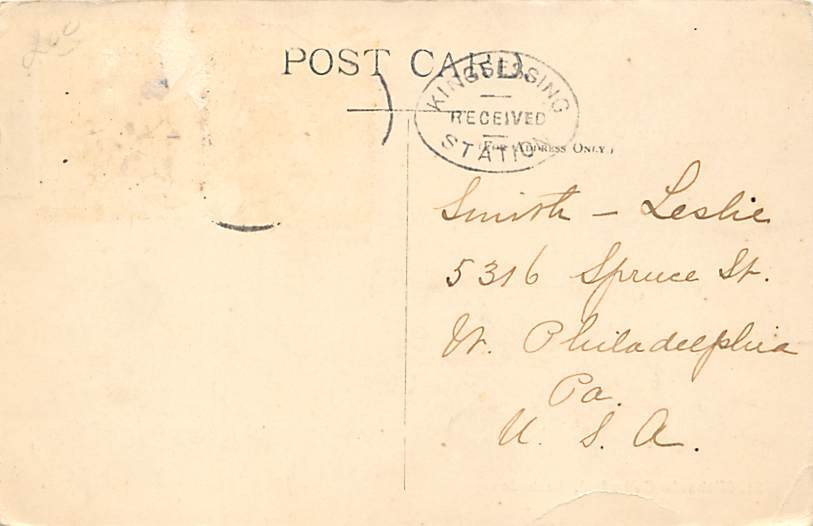 POST CARD.
KINGSESSING
RECEIVED
STATION
(For Address Only)
Smith - Leslie
5316 Spruce St.
W. Philadelphia
Pa.
U. S. A.